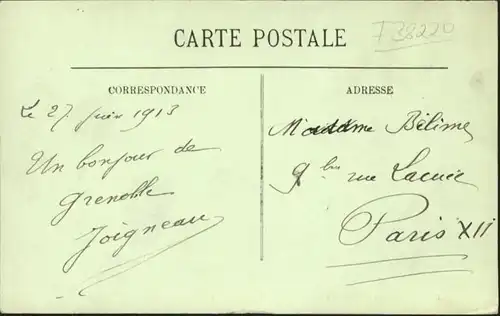 F38220
CARTE POSTALE
CORRESPONDANCE
Le 27 Juin 1913
Un bonjour de
Grenoble
Joigneau
ADRESSE
Madame Bélime
9 bis rue Lacuée
Paris XII